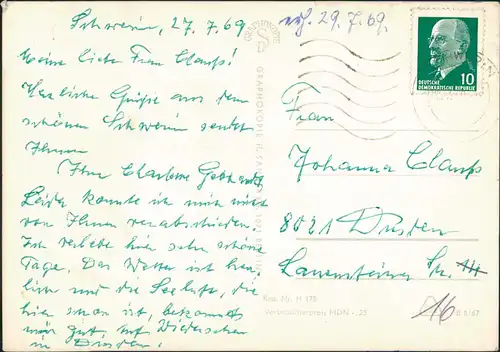 Schwerin, 27.7.69
Meine liebe Frau Clauß!
Herzliche Grüße aus dem
schönen Schwerin sendet
Ihnen
Ihre Charlotte
Leider konnte ich mich nicht
von Ihnen verabschieden.
Ich verlebe hier sehr schöne
Tage. Das Wetter ist herr-
lich und die Seeluft, die
hier so ist, bekommt
mir gut. Auf Wiedersehen
in Dresden!
29.7.69.
GRAPHOKOPIE H. SANDER
DEUTSCHE
DEMOKRATISCHE REPUBLIK
10
Frau
Johanna Clauß
8021 Dresden
Lauensteiner Str.
16
Best.-Nr. H 178
Verbraucherpreis MDN -,25